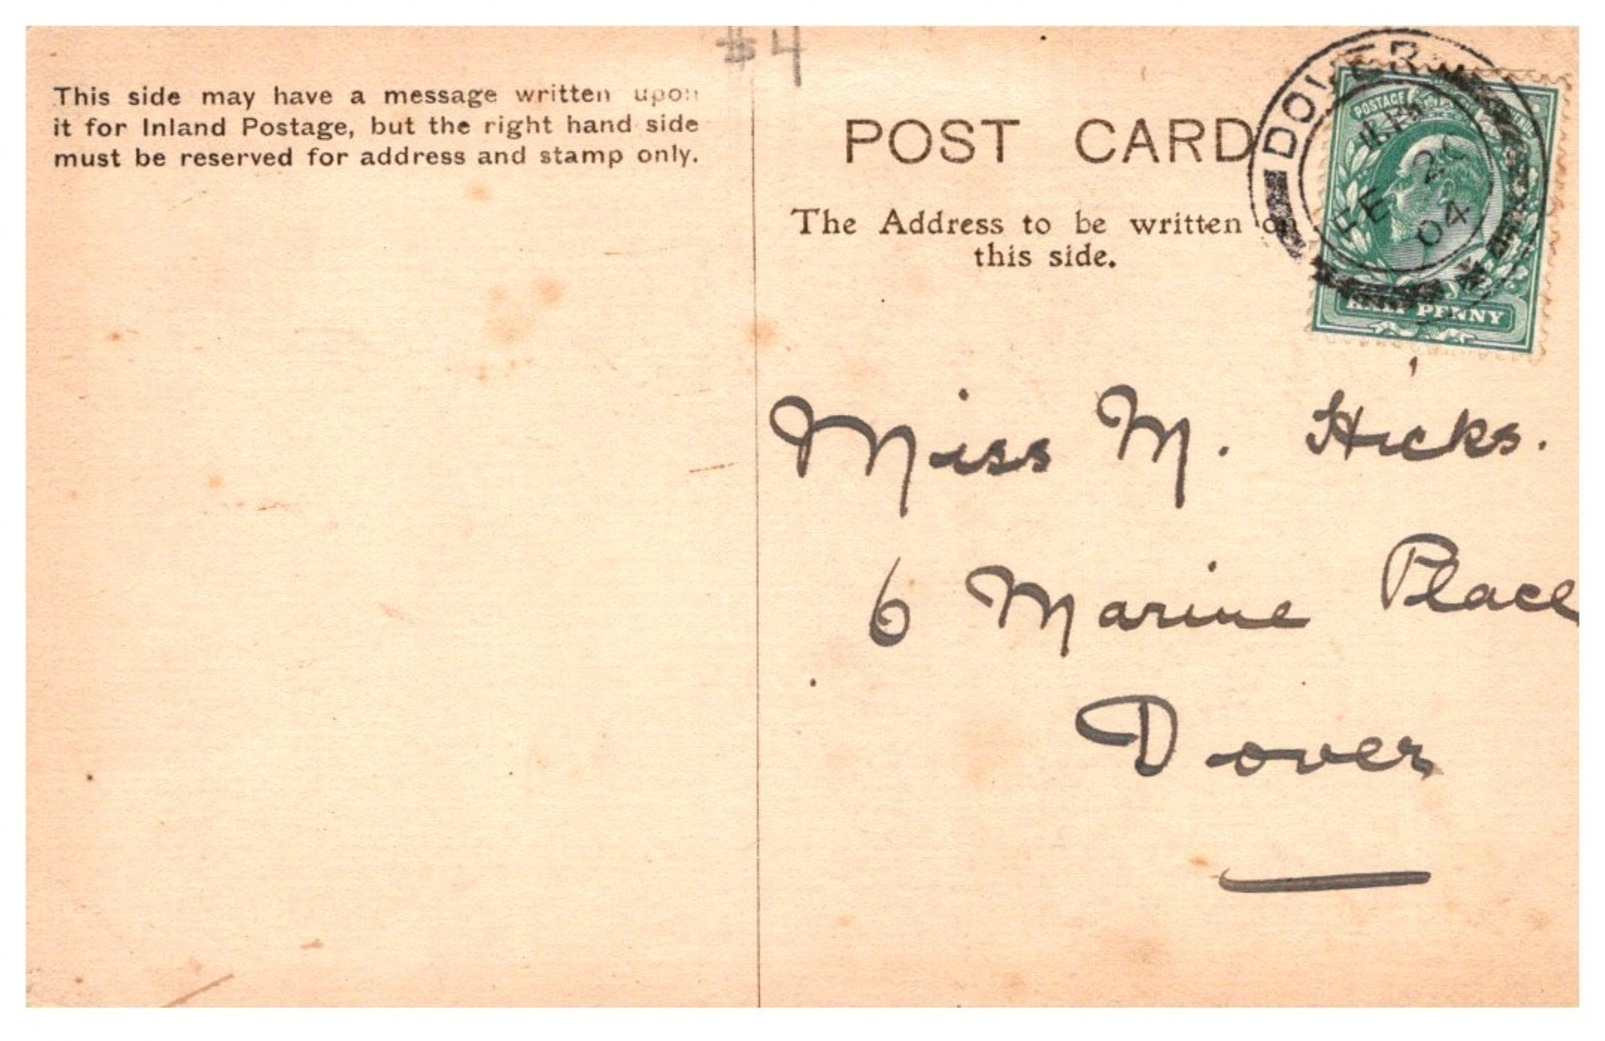 #4
This side may have a message written upon
it for Inland Postage, but the right hand side
must be reserved for address and stamp only.
POST CARD
The Address to be written on
this side.
DOVER
FE 20
04
POSTAGE
HALF PENNY
Miss M. Hicks.
6 Marine Place
Dover